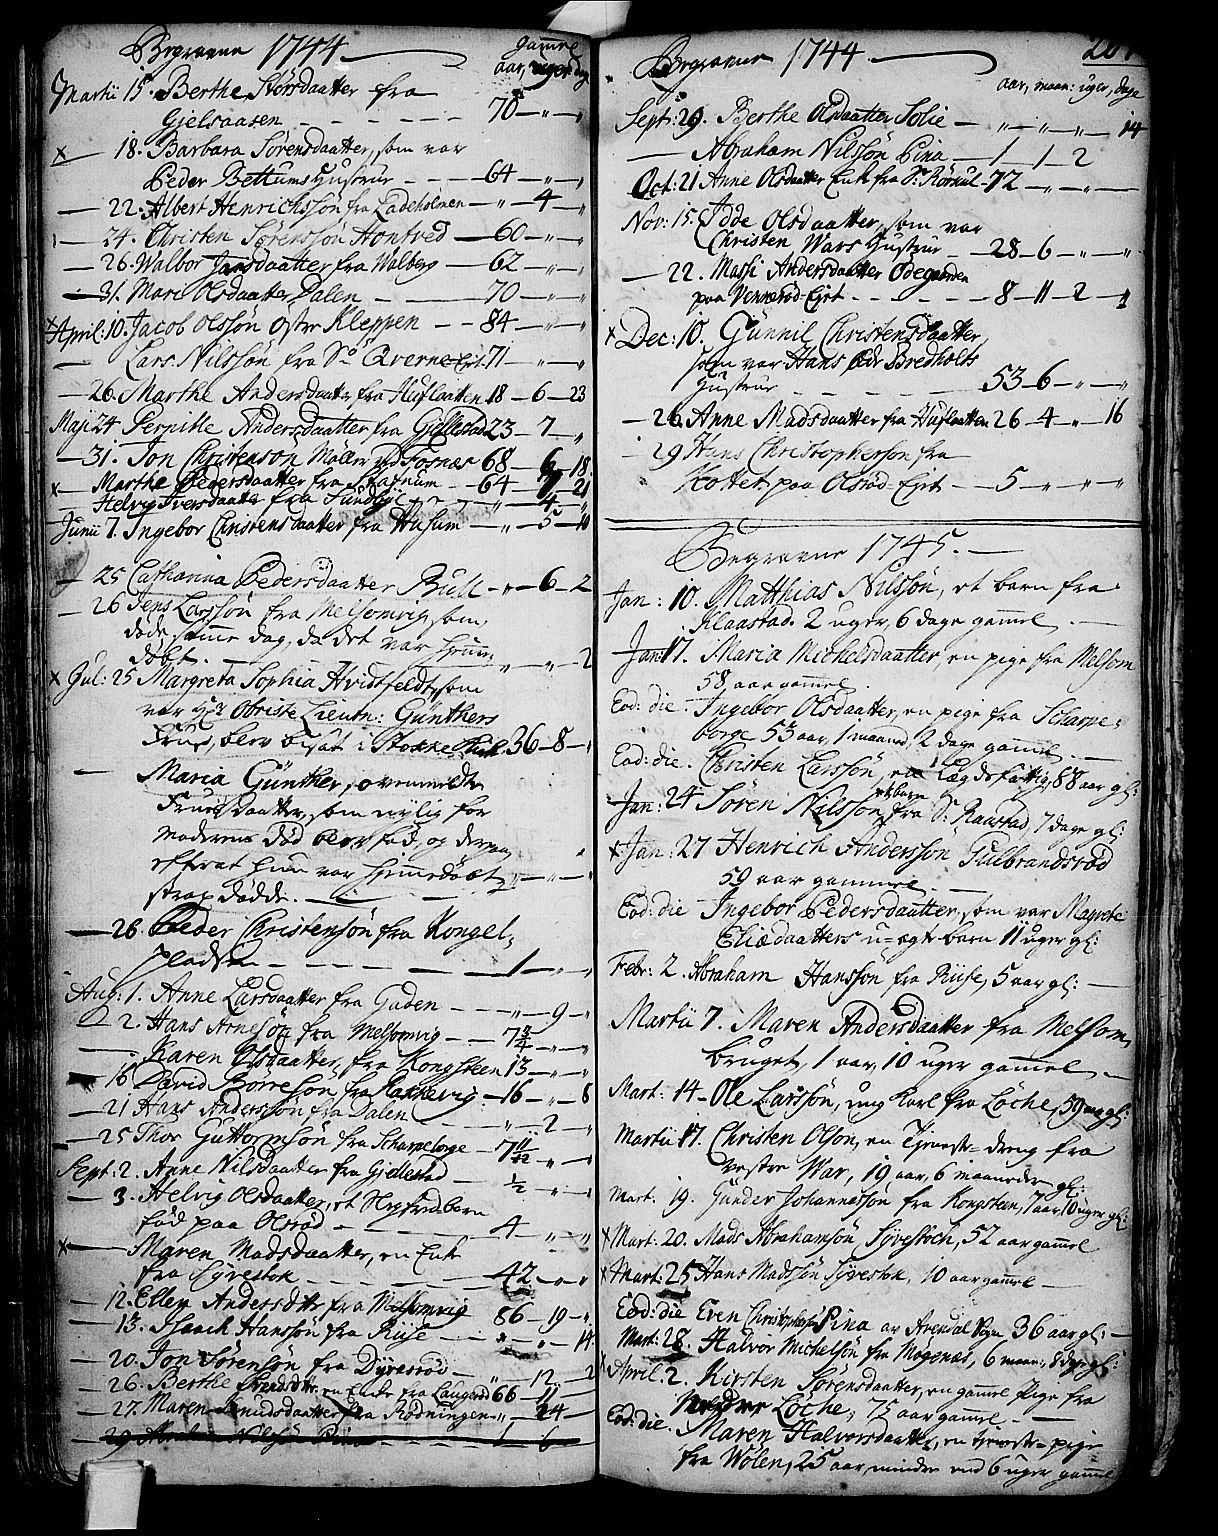 Begravne 1744
Gamel
aar, uger, dage
Martii 15. Berthe Størsdaatter fra
Gjelsaasen 70 - " - "
x 18. Barbara Sørensdaatter, som var
Peder Bettums Hustrue 64 - " - "
22. Albert Henrichssøn fra Ladeholmen - " - 4 - "
24. Christen Sørenssøn Hontved 60 - " - "
26. Walbor Jansdaatter fra Walberg 62 - " - "
31. Mari Olsdaatter Dalen 70 " - "
x April: 10. Jacob Olssøn Østre Kleppen 84 - " - "
Lars Nilssøn fra Sø Qverne Ejet. 71 " - "
26. Marthe Andersdaatter fra Huflaatten 18 - 6 - 23
Maji 24 Pernille Andersdaatter fra Gjellestad 23 - 7 - "
31. Jon Christenson Møller ved Fosnæs 68 - 6 - 18.
x Marthe Pedersdaatter fra Skafnum 64 - 7 - 21
Helvig Iversdaatter fra Sundbye - " - 4 - "
Junii 7. Ingebor Christensdaatter fra Husum - " - 5 - 10
25 Catharina Pedersdaatter Bull - " - 6 - 2
26 Jens Larssøn fra Melsomvig, som
døde samme dag, da det var hjemme
døbt. " - " - 2
x Jul: 25 Margreta Sophia Hvidtfeldt, som
var Hr Obriste Lieutn: Günthers
Frue, blev bisat i Stokke Kirke 36 - 8 - "
Maria Günther, ovenmeldte
Frues daatter, som nylig før
Moderens Død blev fød, og derpaa
efterat hun var hjemmedøbt
strax døde. " - " - "
26. Peder Christensøn fra Kongel-
pladsen 1 - " - "
Aug: 1. Anne Larsdaatter fra Gaden - " - 9 - "
2. Hans Arnesøn fra Melsomvig 7 3/4 - " - "
Karen Olsdaatter, fra Kongsteen 13 - " - "
16 David Borresøn fra Rakkevig 16 - " - 8
21 Hans Anderssøn fra Dalen - " - 2 - "
25 Thor Guttormsøn fra Scharpeborge 7 11/12 - " - "
Sept: 2. Anne Nilsdaatter fra Gjellestad 1/2 - " - "
3. Helvig Olsdaatter, et Slegfredbarn
fød paa Olsrød 4 - " - "
x Maren Madsdaatter, en Enke
fra Syvestok 42 - " - "
12. Ellen Andersdtr fra Melsomvig 86 - 19 - "
13. Isaach Hanssøn fra Riise " - " - 14
20. Jon Sørensøn fra Dyresrøv " - 12 - 2
26. Berthe dtr. en Enke fra Laugerød 66 - 11 -
27. Maren Knudsdaatter fra Rødningen " - 24 -
29 Abraham Nilssøn Pina 1 - 6

Begravne 1744
aar, maan: uger, dage
Sept: 29. Berthe Olsdaatter Solie - " - " - " - 14
Abraham Nilssøn Pina 1 - 1 - 2
Oct: 21 Anne Olsdaatter Enke fra Sø: Rørkul 72 - " - " -
Nov: 15. Edde Olsdaatter, som var
Christen Wars Hustrue 28 - 6 - " - "
22. Massi Andersdaatter Ødegaarden
paa Vennerød Ejet 8 - 11 - 2 - "
x Dec: 10. Gunnil Christensdaatter,
som var Hans Bredholts
Hustrue 53 - 6 - " - "
26. Anne Madsdaatter fra Huflaatten 26 - 4 - " - 16
29 Hans Christopherson fra
Kottet paa Olsrød Ejet 5 - " - " - "
Begravne 1745.
Jan: 10. Matthias Nilsøn, et barn fra
Klaastad. 2 uger, 6 dage gammel
Jan: 17. Maria Michelsdaatter, en pige fra Melsom
58 aar gammel
Eod: die. Ingebor Olsdaatter, en pige fra Scharpe-
borge 53 aar, 1 maaned, 2 dage gammel
Eod: die. Christen Larssøn, en Lægdsfattig, 88 aar gl:
et barn
Jan: 24 Søren Nilssøn fra Sø: Raastad, 7 dage gl:
x Jan: 27 Henrich Andersson Gulbrandsrød
59 aar gammel.
Eod: die Ingebor Pedersdaatter, som var Magrete
Eliædaatters u-ægte barn 11 uger gl:
Febr: 2. Abraham Hansson fra Riise, 5 aar gl:
Martii 7. Maren Andersdaatter fra Melsom,
bruget, 1 aar, 10 uger gammel
Mart: 14 - Ole Larssøn, ung karl fra Løche, 59 aar gl:
Martii 17. Christen Olson, en Tjeneste-dreng fra
vestre War, 19 aar, 6 maaneder gl:
Mart: 19. Gunder Johannessøn fra Kongsteen, 7 aar 10 uger gl:
x Mart: 20. Mads Abrahamsøn Syvestoch, 52 aar gammel
x Mart: 25 Hans Madssøn Syvestok, 10 aar gammel
Eod: die Even Christophersøn Pina av Arendal Egn 36 aar gl:
Mart: 28. Halvor Michelsøn fra Mogenæs, 6 maan:, 8 dage gl:
April: 2. Kirsten Sørensdaatter, en gammel Pige fra
Nedre Løche, 75 aar gammel
Eod: die. Maren Halvorsdaatter, en tjeneste-pige
fra Wølen, 25 aar, minder end 6 uger gammel